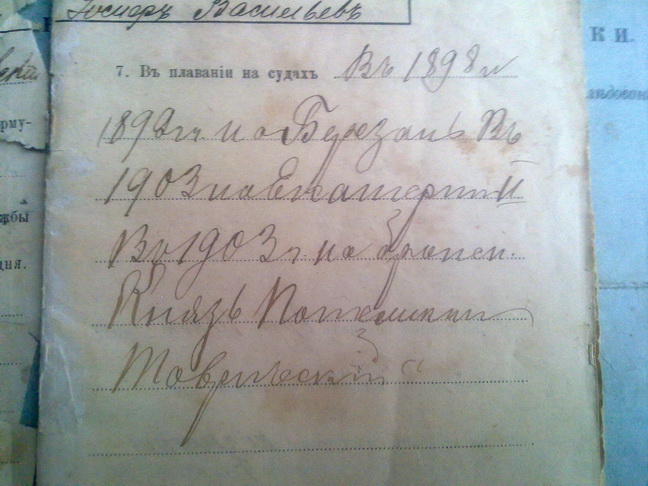 Іосифъ Васильевъ
К И.
7. Въ плаваніи на судахъ Въ 1898 и
1899 гг на Березань Въ
1903 на Екатерин II
Въ 1903 г. на бронен.
Князь Потемкинъ
Таврическій"
рму-
жбы
дня.